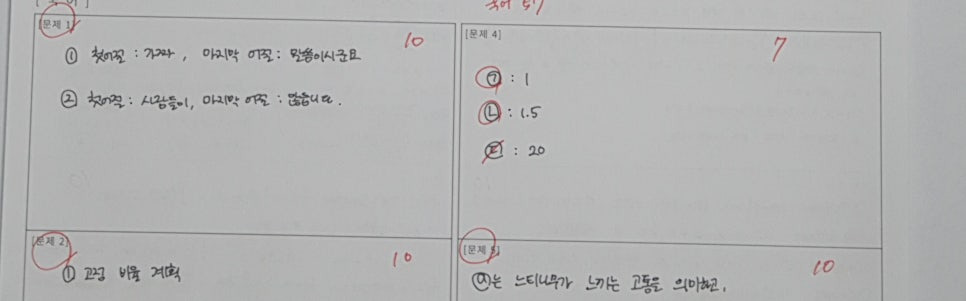 국어 57
[문제 1]
10
① 첫어절 : 가짜, 마지막 어절 : 말씀이시군요
② 첫어절 : 사람들이, 마지막 어절 : 많습니다.
[문제 2]
10
① 고정 비율 계획
[문제 4]
7
㉠ : 1
㉡ : 1.5
㉢ : 20
[문제 5]
10
ⓐ는 느티나무가 느끼는 고통을 의미하고,